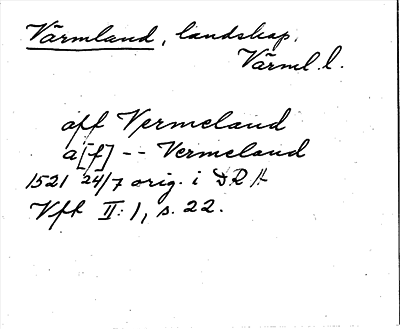 Värmland, landskap.
Värml. l.
aff Vermeland
a[f] -- Vermeland
1521 24/7 orig. i DRA
Vft II:1, s. 22.